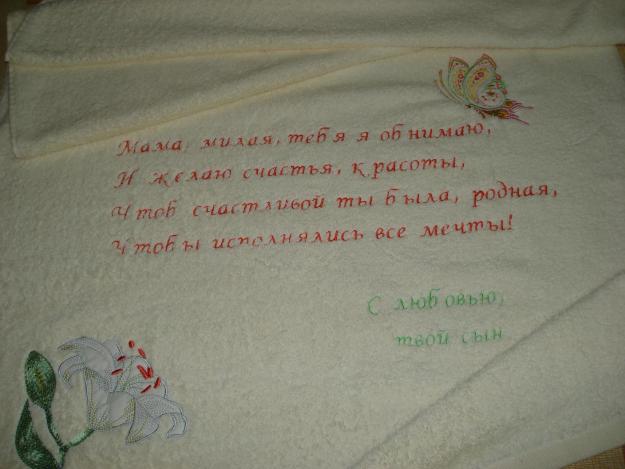 Мама, милая, тебя я обнимаю,
И желаю счастья, красоты,
Чтоб счастливой ты была, родная,
Чтобы исполнялись все мечты!
С любовью,
твой сын